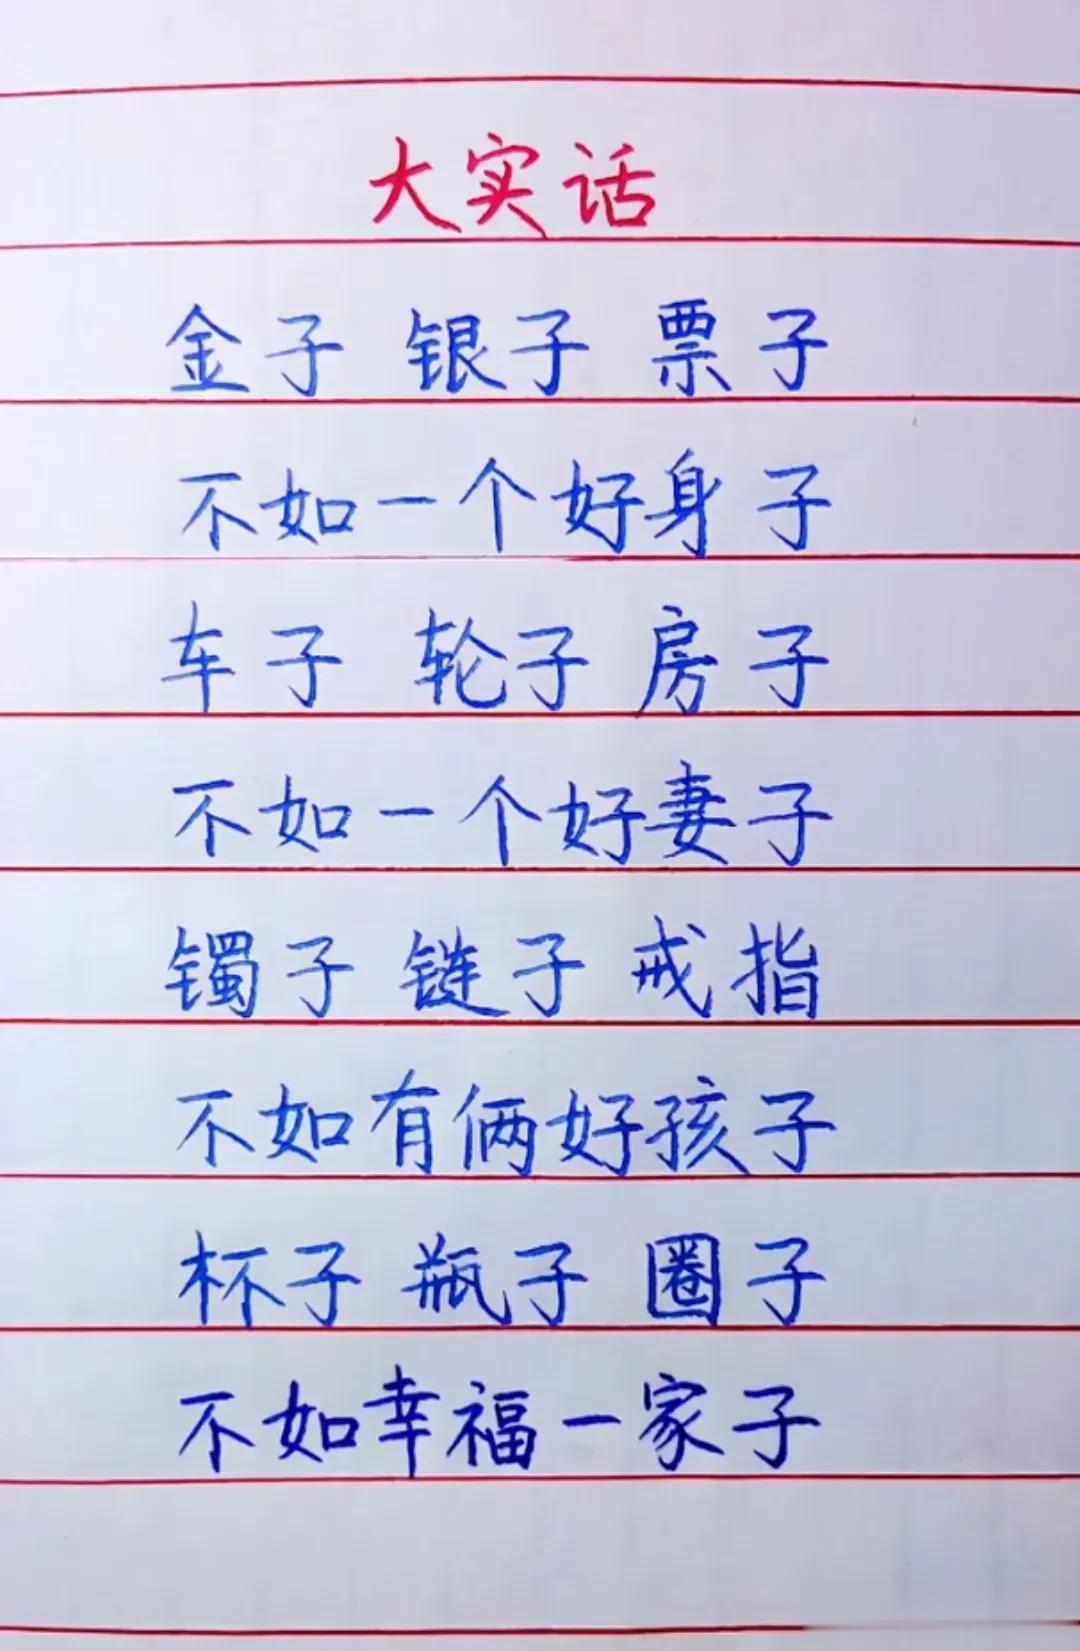 大实话
金子 银子 票子
不如一个好身子
车子 轮子 房子
不如一个好妻子
镯子 链子 戒指
不如有俩好孩子
杯子 瓶子 圈子
不如幸福一家子